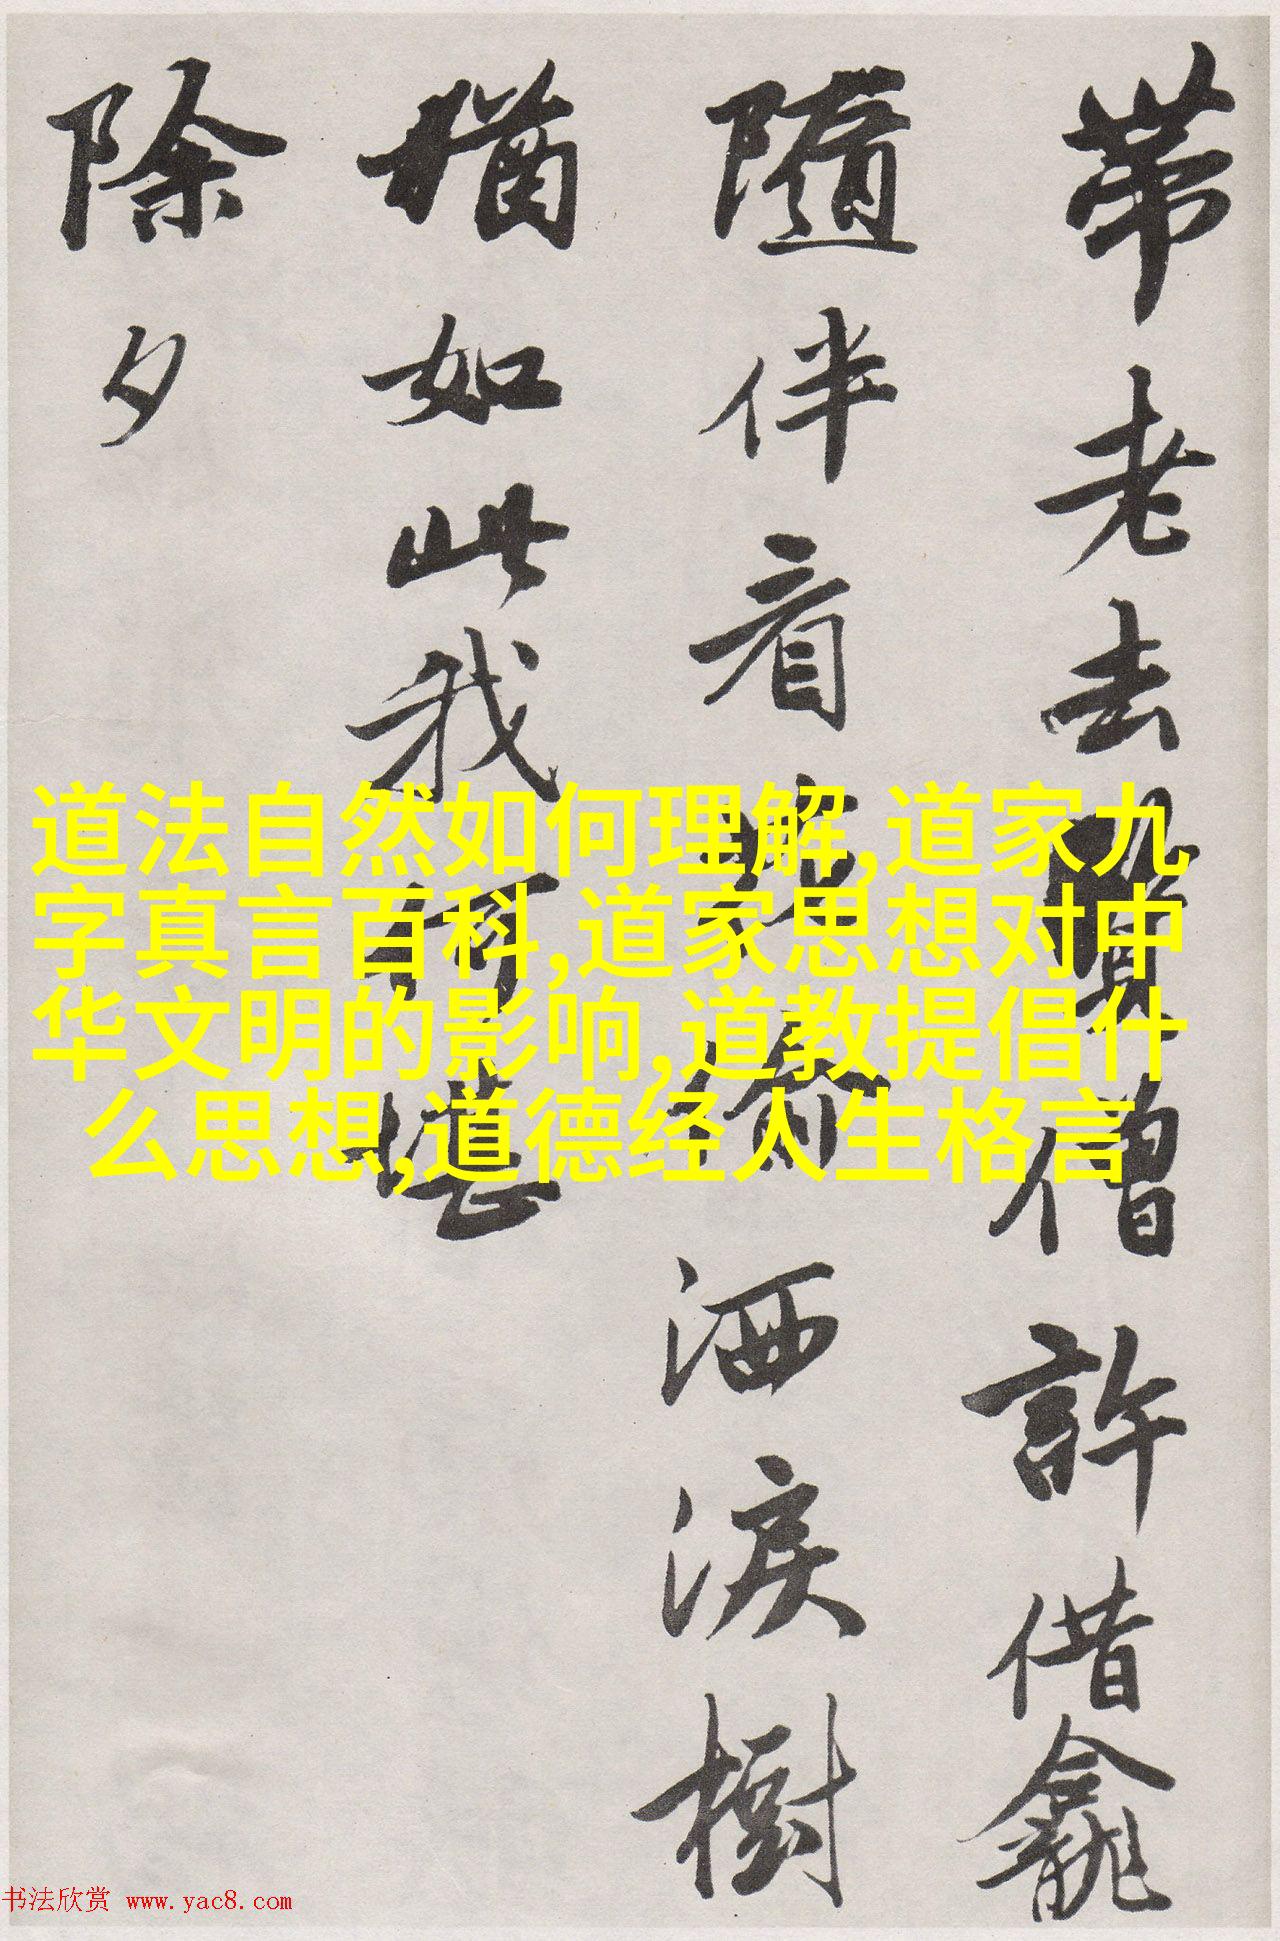 帶老去賢僧許借龕
隨伴看花偷洒淚樹
猶如此我何堪
除夕
道法自然如何理解,道家九
字真言百科,道家思想对中
华文明的影响,道教提倡什
么思想,道德经人生格言
书法欣赏 www.yac8.com